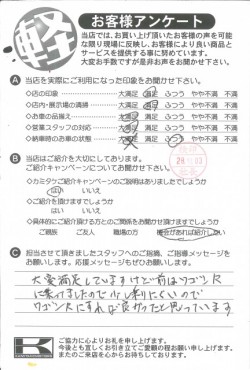 軽
お客様アンケート
当店では、お買い上げ頂いたお客様の声を可能
な限り現場に反映し、お客様により良い商品と
サービスを提供する事に努めています。
大変お手数ですが是非お声をお聞かせ下さい。
A 当店を実際にご利用になった印象をお聞かせ下さい。
◇店の印象 大満足 満足 ふつう やや不満 不満
◇店内・展示場の清掃 大満足 満足 ふつう やや不満 不満
◇お車の品揃え 大満足 満足 ふつう やや不満 不満
◇営業スタッフの対応 大満足 満足 ふつう やや不満 不満
◇納車時のお車の状態 大満足 満足 ふつう やや不満 不満
B 当店はご紹介を大切にしております。
ご紹介キャンペーンについてお聞かせ下さい。
◇カミタケご紹介キャンペーンの説明はありましたでしょうか
はい いいえ
◇ご紹介をお願い出来ますでしょうか
はい いいえ
◇具体的にご紹介頂ける方とのご関係をお聞かせ頂けますでしょうか
ご親族 ご友人 職場の方 機会があれば紹介したい
C 担当させて頂きましたスタッフへのご指摘、ご指導メッセージを
お願いします。応援メッセージもぜひお願いします。
大変満足していますけど前はワゴンR
に乗ってましたので少し刺りにくいので
ワゴンRにすれば良かったと思っています
K
ご協力に心よりお礼を申し上げます。
今後とも宜しくお引き立てご愛顧の程お願い申し上げます。
またのご来店を心からお待ちしております。